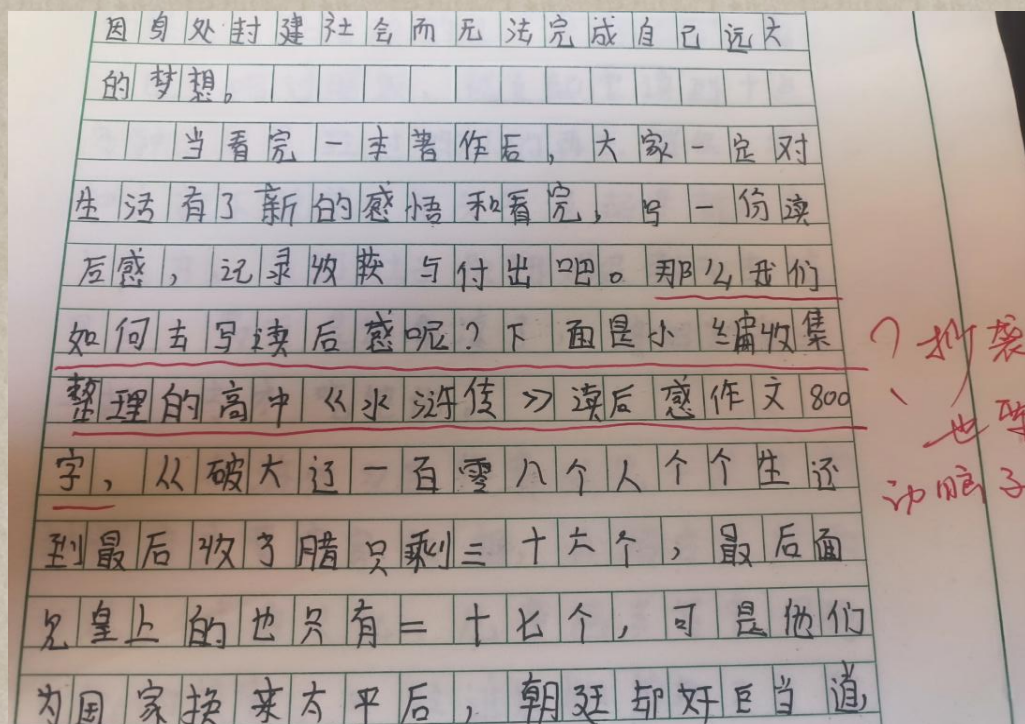 因身处封建社会而无法完成自己远大
的梦想。
当看完一本著作后，大家一定对
生活有了新的感悟和看完，写一份读
后感，记录收获与付出吧。那么我们
如何去写读后感呢？下面是小编收集
整理的高中《水浒传》读后感作文800
字，从破大辽一百零八个人个个生还
到最后收了腊只剩三十六个，最后面
见皇上的也只有二十七个，可是他们
为国家换来太平后，朝廷却奸臣当道，
？抄袭
也
动脑子